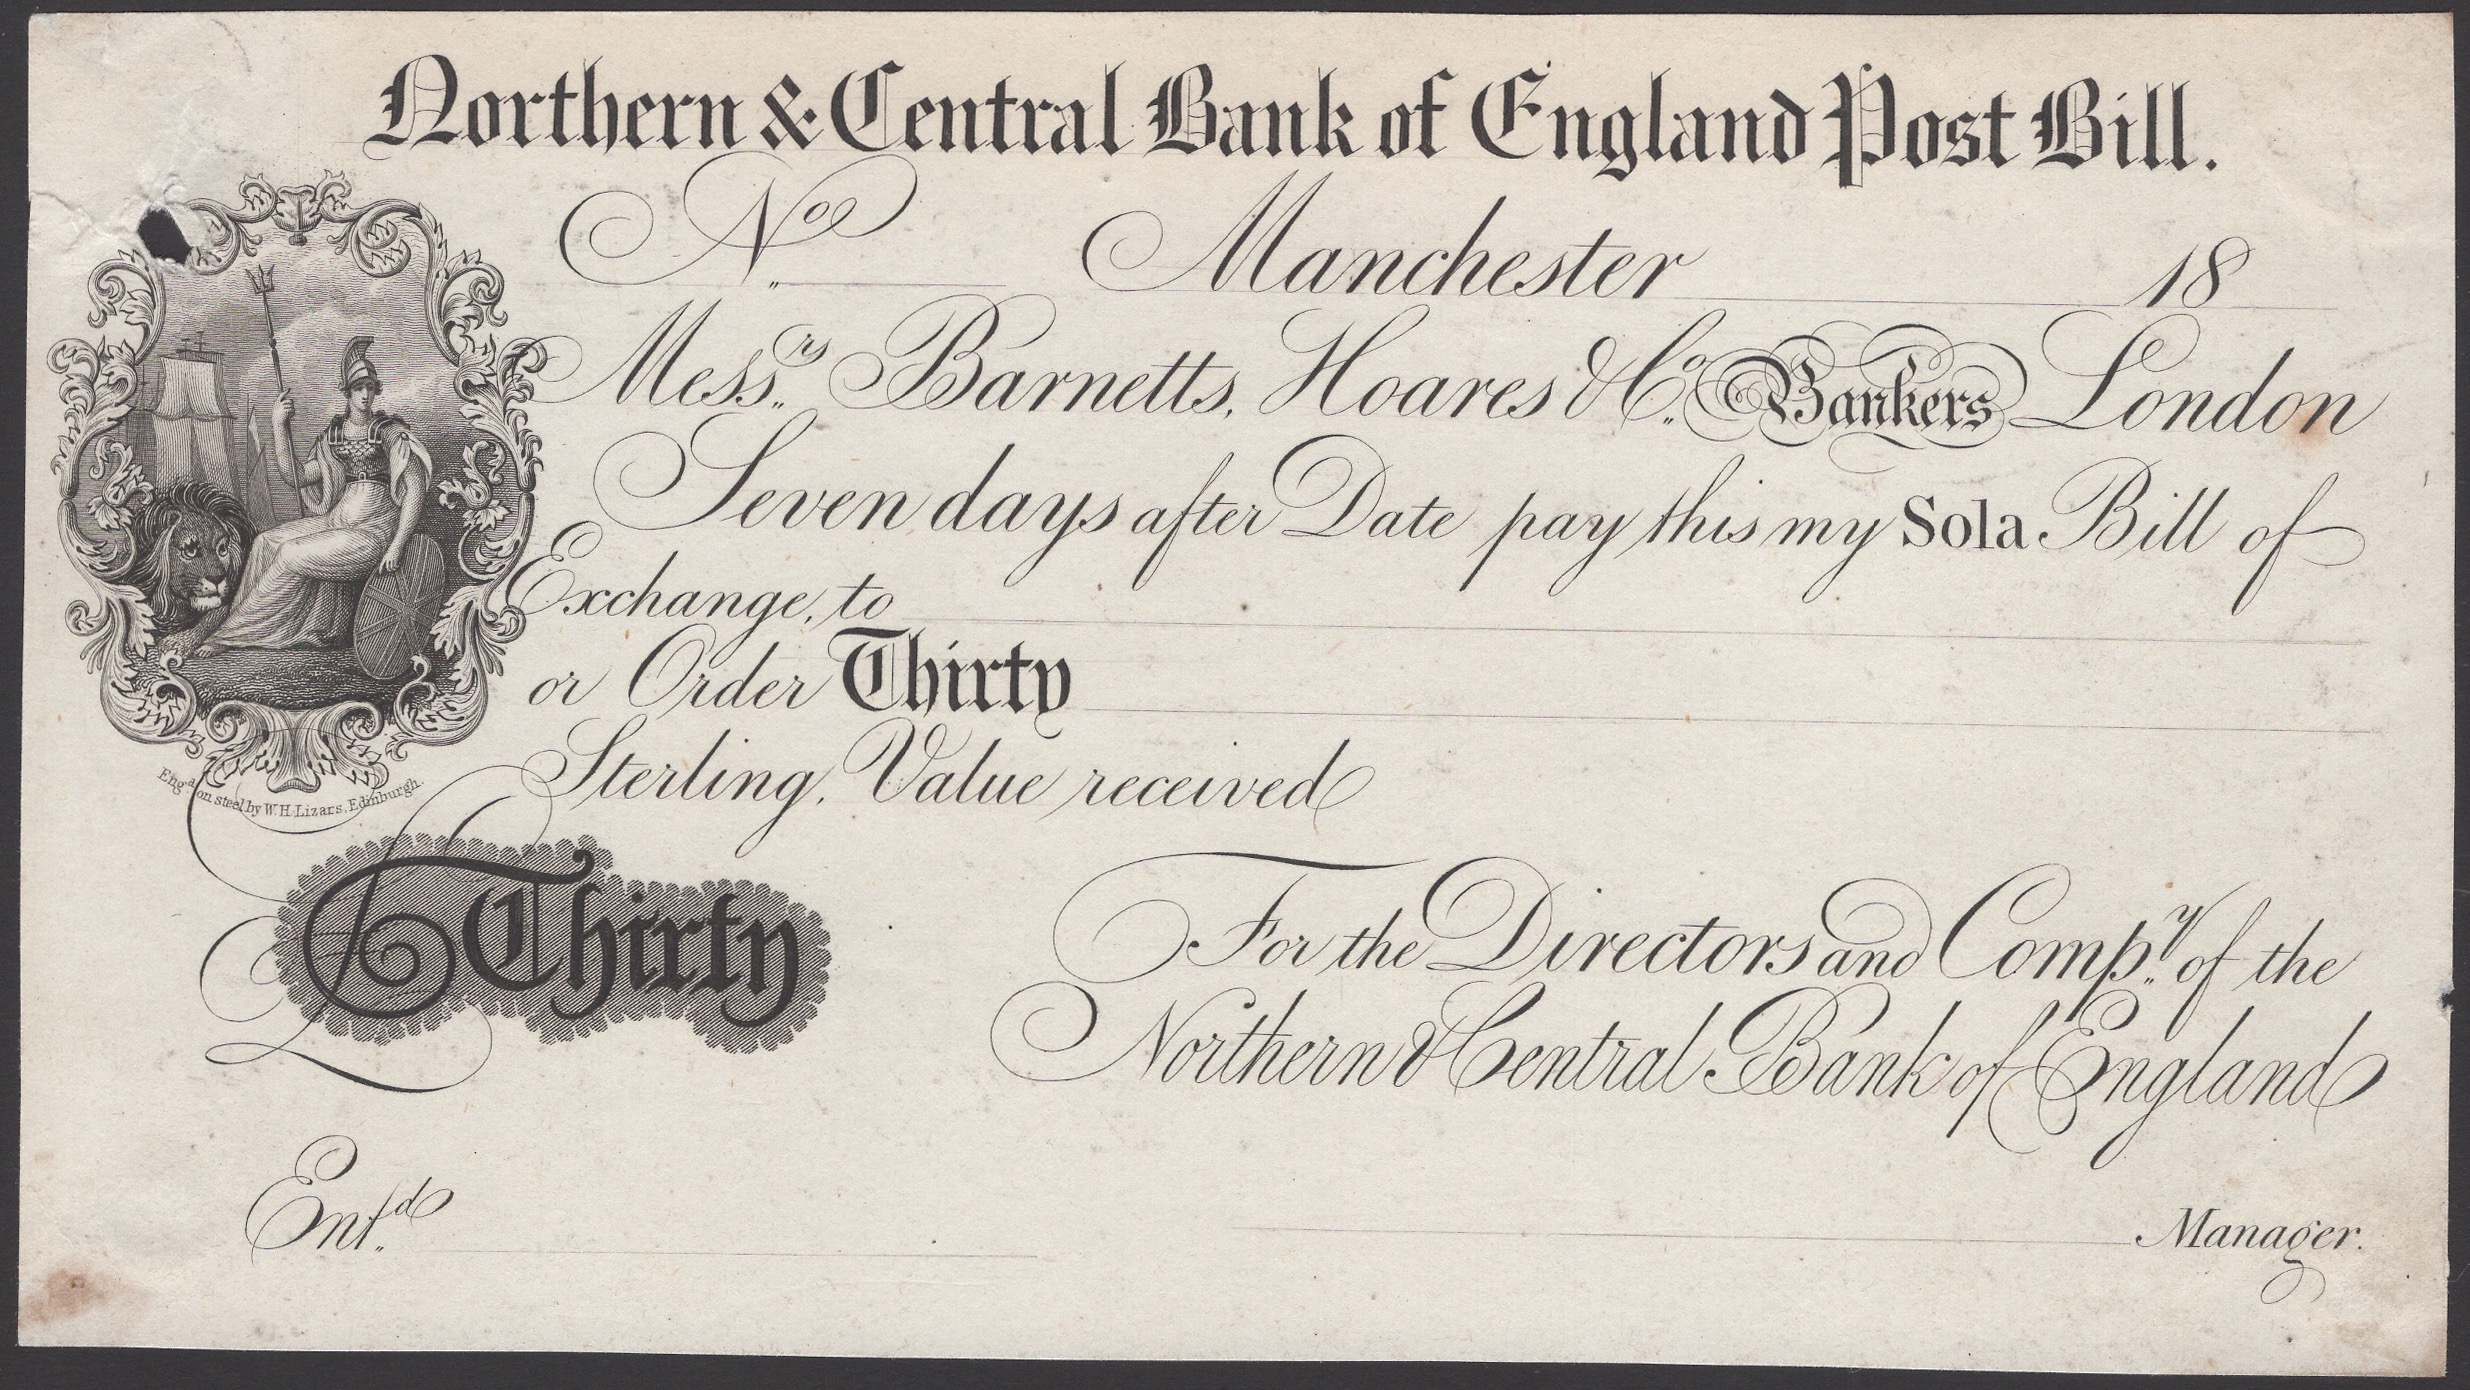 Northern & Central Bank of England Post Bill.
No. Manchester 18
Messrs. Barnetts, Hoares & Co. Bankers London
Seven days after Date pay this my Sola Bill of
Exchange, to
or Order Thirty
Sterling, Value received
Engd. on steel by W.H. Lizars, Edinburgh.
£ Thirty
For the Directors and Compy. of the
Northern & Central Bank of England
Entd.
Manager.